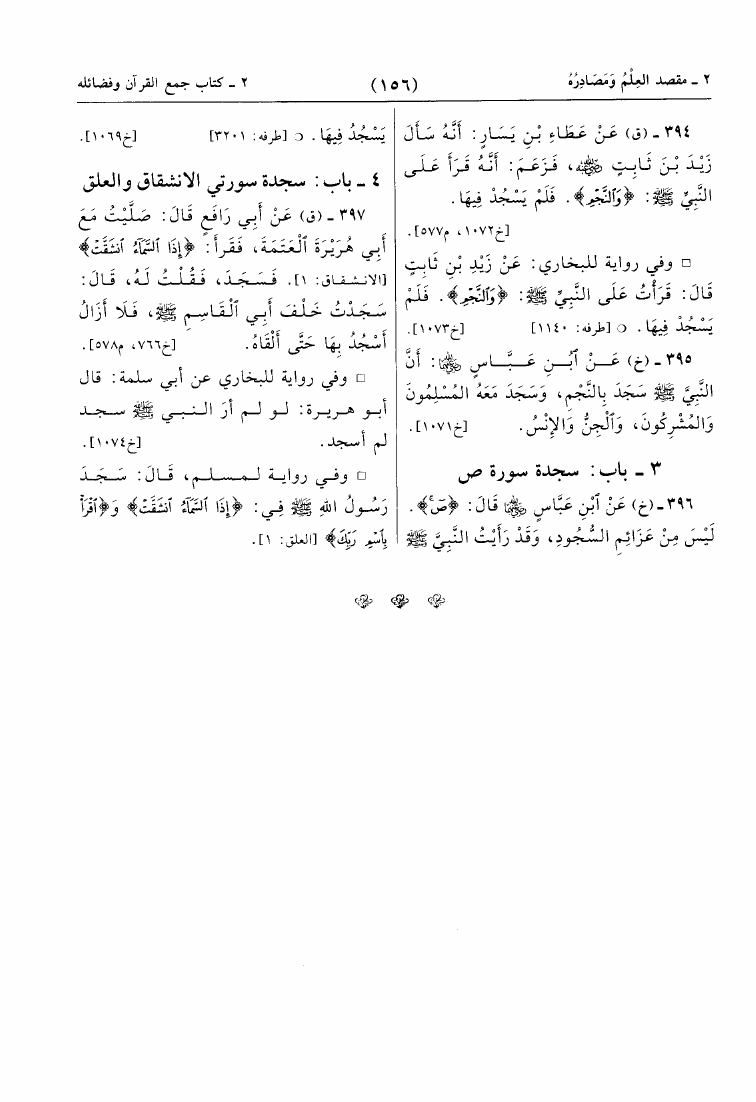 ٢ ـ مقصد العِلْمُ وَمَصَادِرُهُ
(١٥٦)
٢ ـ كتاب جمع القرآن وفضائله
٣٩٤ ـ (ق) عَنْ عَطَاءِ بْنِ يَسَارٍ: أَنَّهُ سَأَلَ
زَيْدَ بْنَ ثَابِتٍ رضي الله عنه، فَزَعَمَ: أَنَّهُ قَرَأَ عَلَى
النَّبِيِّ ﷺ: ﴿وَٱلنَّجْمِ﴾. فَلَمْ يَسْجُدْ فِيهَا.
[خ١٠٧٢، م٥٧٧].
□ وفي رواية للبخاري: عَنْ زَيْدِ بْنِ ثَابِتٍ
قَالَ: قَرَأْتُ عَلَى النَّبِيِّ ﷺ: ﴿وَٱلنَّجْمِ﴾. فَلَمْ
يَسْجُدْ فِيهَا. ○ [طرفه: ١١٤٠] [خ١٠٧٣].
٣٩٥ ـ (خ) عَـنْ ٱبْـنِ عَـبَّـاسٍ رضي الله عنهما: أَنَّ
النَّبِيَّ ﷺ سَجَدَ بِالنَّجْمِ، وَسَجَدَ مَعَهُ المُسْلِمُونَ
وَالمُشْرِكُونَ، وَٱلْجِنُّ وَالإِنْسُ. [خ١٠٧١].
٣ ـ باب: سجدة سورة ص
٣٩٦ـ (خ) عَنْ ٱبْنِ عَبَّاسٍ رضي الله عنهما قَالَ: ﴿صٓ﴾.
لَيْسَ مِنْ عَزَائِمِ السُّجُودِ، وَقَدْ رَأَيْتُ النَّبِيَّ ﷺ
يَسْجُدُ فِيهَا. ○ [طرفه: ٣٢٠١] [خ١٠٦٩].
٤ ـ باب: سجدة سورتي الانشقاق والعلق
٣٩٧ ـ (ق) عَنْ أَبِي رَافِعٍ قَالَ: صَلَّيْتُ مَعَ
أَبِي هُرَيْرَةَ ٱلْعَتَمَةَ، فَقَرأَ: ﴿إِذَا ٱلسَّمَآءُ ٱنشَقَّتْ﴾
[الانـشـقـاق: ١]. فَـسَـجَـدَ، فَـقُـلْـتُ لَـهُ، قَـالَ:
سَـجَـدْتُ خَـلْـفَ أَبِـي ٱلْـقَـاسِـمِ ﷺ، فَـلَا أَزَالُ
أَسْجُدُ بِهَا حَتَّى أَلْقَاهُ. [خ٧٦٦، م٥٧٨].
□ وفي رواية للبخاري عن أبي سلمة: قال
أبـو هـريـرة: لـو لـم أرَ الـنـبـي ﷺ سـجـد
لم أسجد. [خ١٠٧٤].
□ وفـي روايـة لـمـسـلـم، قَـالَ: سَـجَـدَ
رَسُـولُ اللهِ ﷺ فِـي: ﴿إِذَا ٱلسَّمَآءُ ٱنشَقَّتْ﴾ وَ﴿ٱقْرَأْ
بِٱسْمِ رَبِّكَ﴾ [العلق: ١].